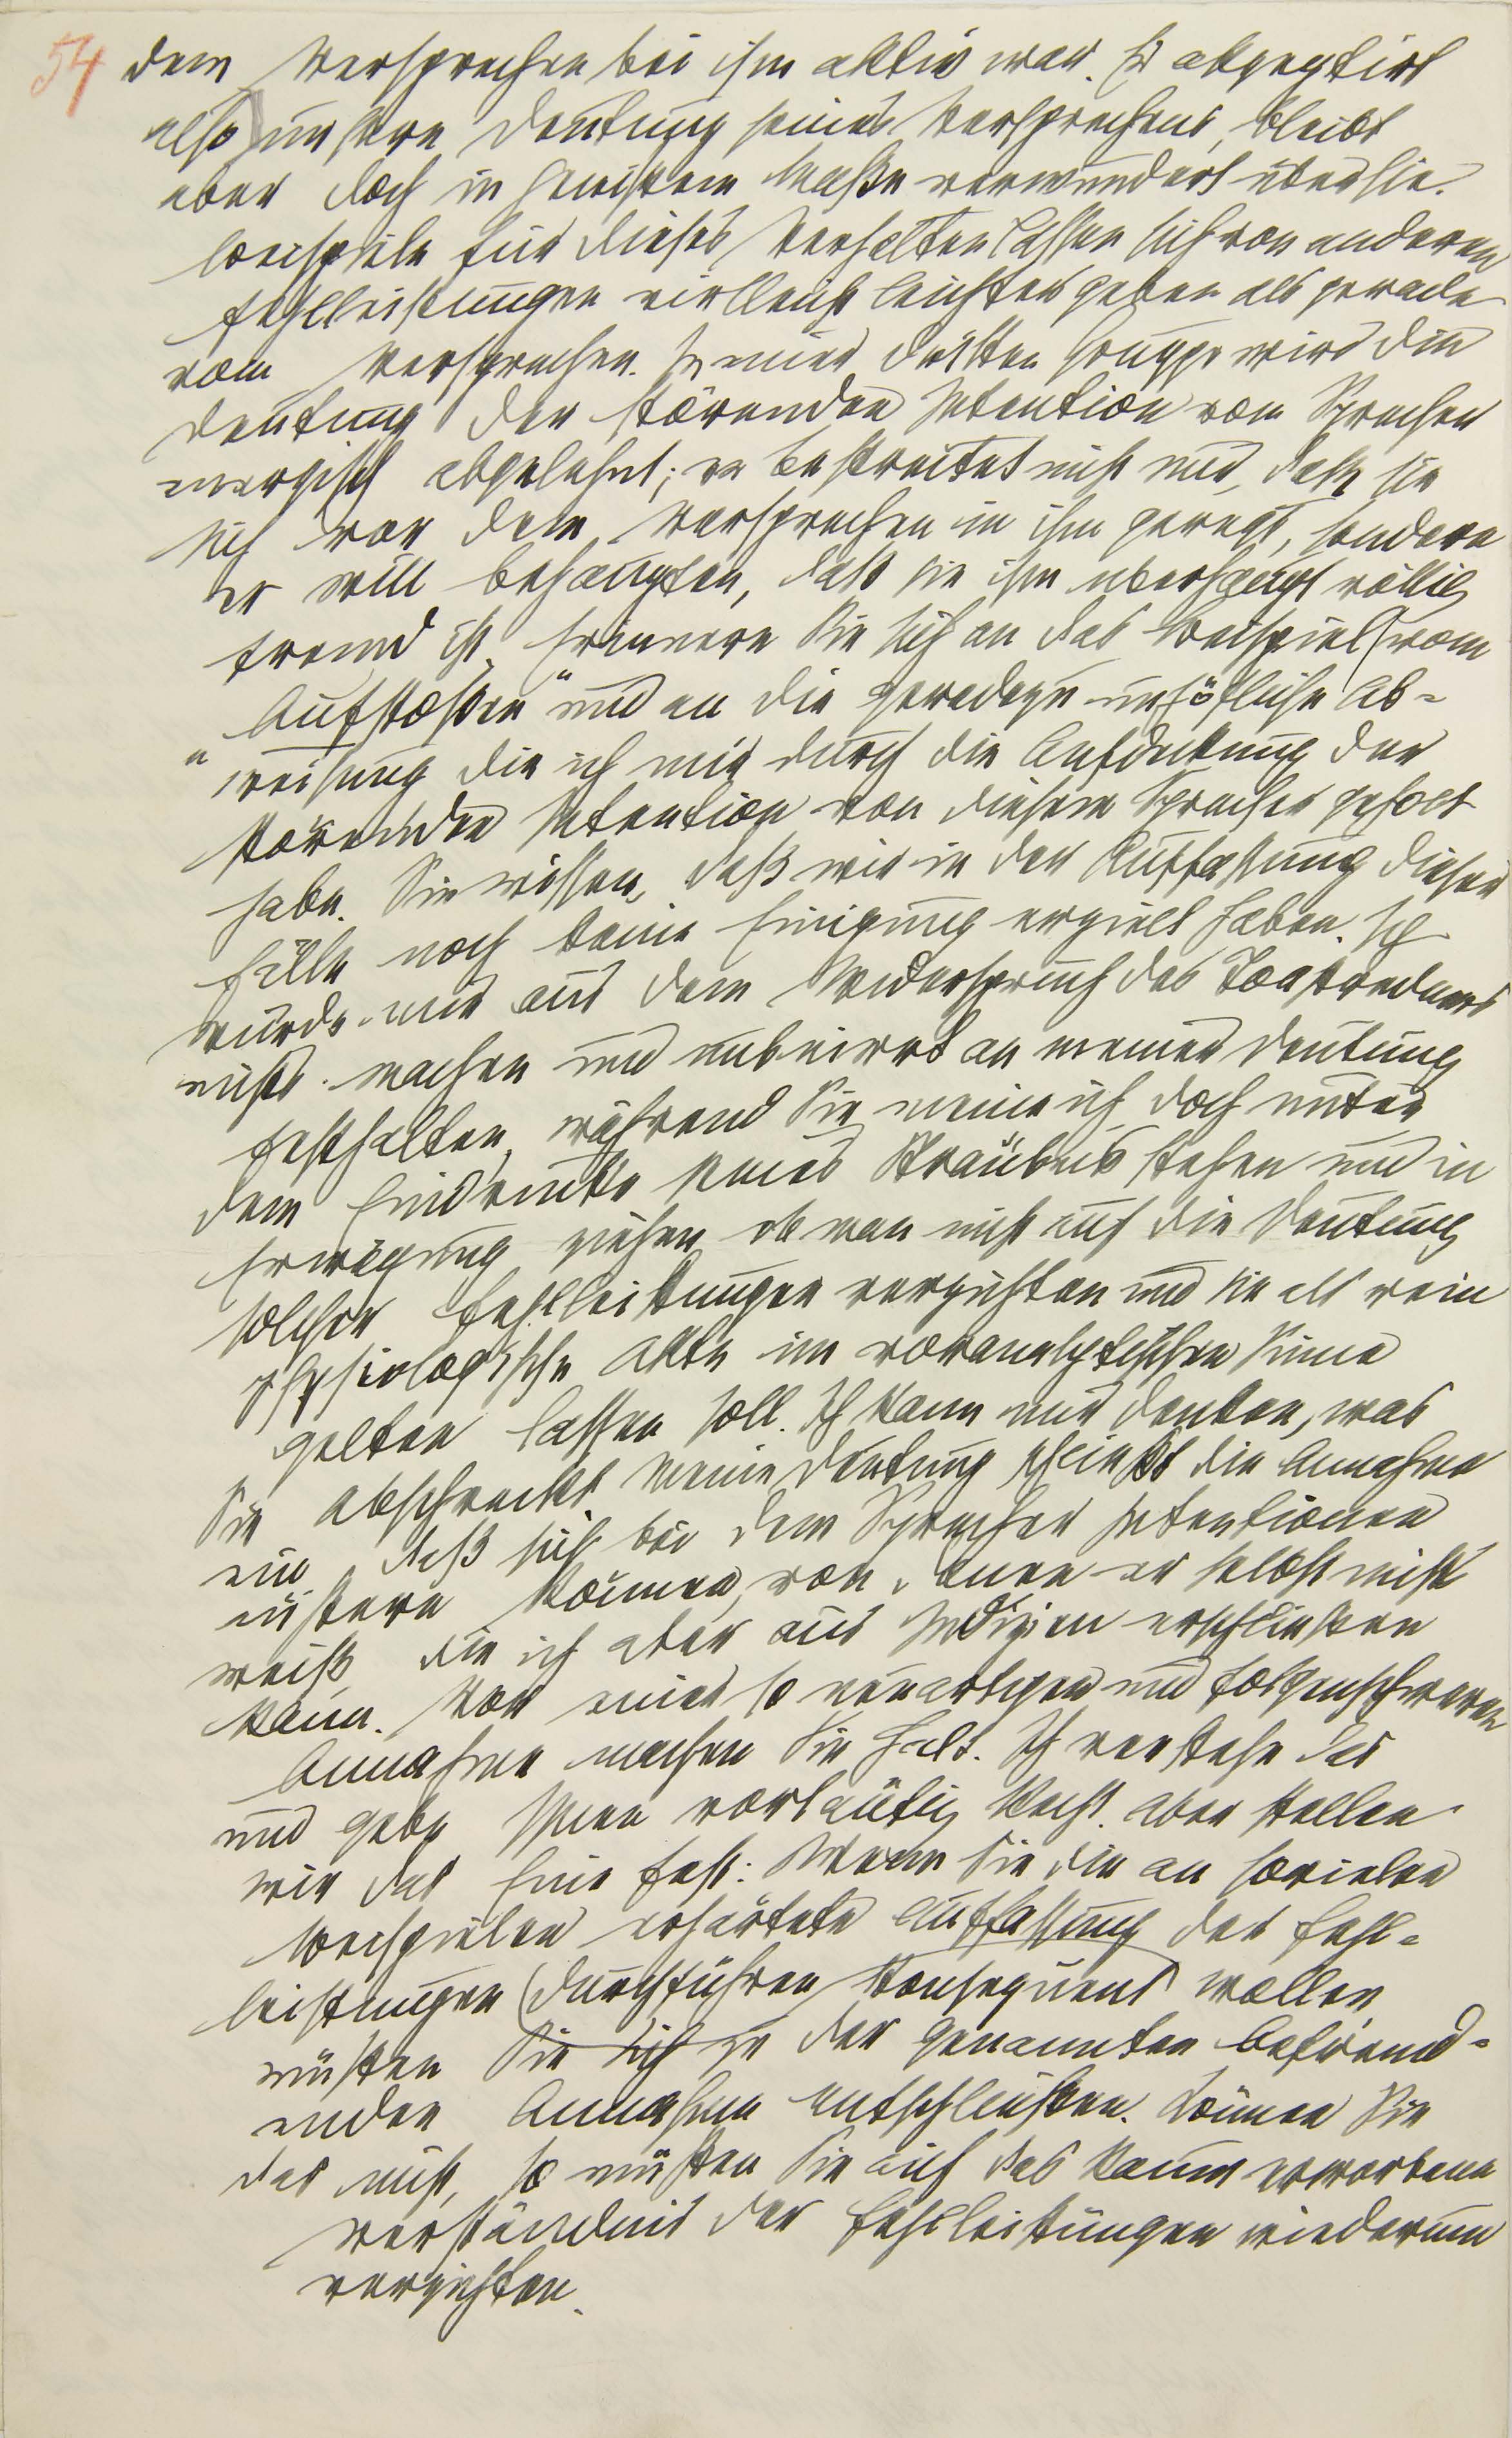 54
dem Versprechen bei ihm aktiv war. Er akzeptirt
also unsere Deutung seines Versprechens, bleibt
aber doch in gewissem Maße verwundert über sie.
Beispiele für dieses Verhalten lassen sich von anderen
Fehlleistungen vielleicht leichter geben als gerade
vom Versprechen. In einer dritten Gruppe wird die
Deutung der störenden Intention vom Sprecher
energisch abgelehnt; er bestreitet nicht nur, daß sie
sich vor dem Versprechen in ihm geregt, sondern
er will behaupten, daß sie ihm überhaupt völlig
fremd ist. Erinnern Sie sich an das Beispiel vom
„Aufstoßen“ und an die geradezu unhöfliche Ab-
weisung die ich mir durch die Aufdeckung der
störenden Intention von diesem Sprecher geholt
habe. Sie wissen, daß wir in der Auffassung dieser
Fälle noch keine Einigung erzielt haben. Ich
würde mir aus dem Widerspruch des Toastredners
nichts machen und unbeirrt an meiner Deutung
festhalten, während Sie, meine ich, doch unter
dem Eindrucke seines Sträubens stehen und in
Erwägung ziehen, ob man nicht auf die Deutung
solcher Fehlleistungen verzichten und sie als rein
physiologische Akte im voranalytischen Sinne
gelten lassen soll. Ich kann mir denken, was
Sie abschreckt. Meine Deutung schließt die Annahme
ein, daß sich bei dem Sprecher Intentionen
äußern können, von denen er selbst nicht
weiß, die ich aber aus Indizien erschließen
kann. Vor einer so neuartigen und folgenschweren
Annahme machen Sie Halt. Ich verstehe das
und gebe Ihnen vorläufig Recht. Aber stellen
wir das Eine fest: Wenn Sie die an sovielen
Beispielen erhärtete Auffassung der Fehl-
leistungen durchführen konsequent wollen
müssen Sie sich zu der genannten befremd-
enden Annahme entschließen. Können Sie
das nicht, so müssen Sie auf das kaum erworbene
Verständnis der Fehlleistungen wiederum
verzichten.